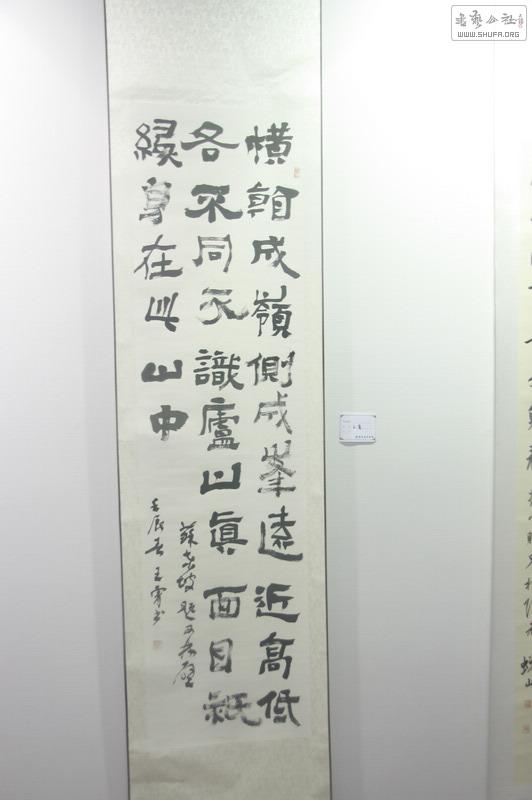 书艺公社
WWW.SHUFA.ORG
橫看成嶺側成峯遠近高低
各不同不識廬山眞面目祇
緣身在此山中
蘇東坡題西林壁
壬辰春王